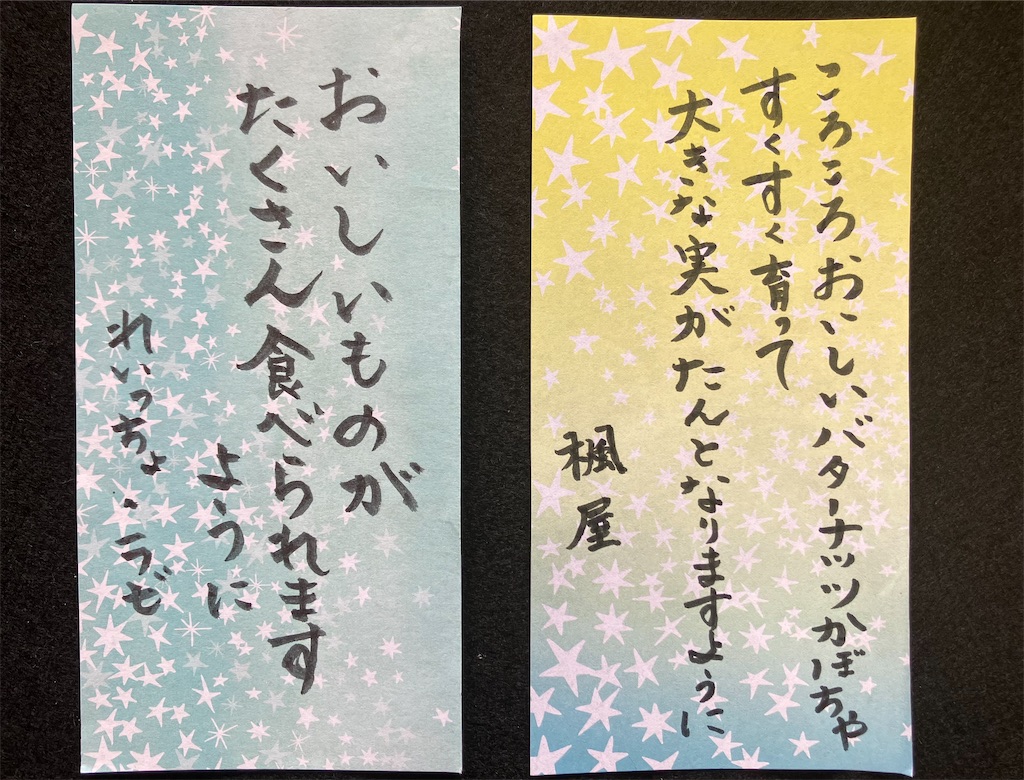 ころころおいしいバターナッツかぼちゃ
すくすく育って
大きな実がたんとなりますように
楓屋
おいしいものが
たくさん食べられます
ように
れいっちょ・ラゼ